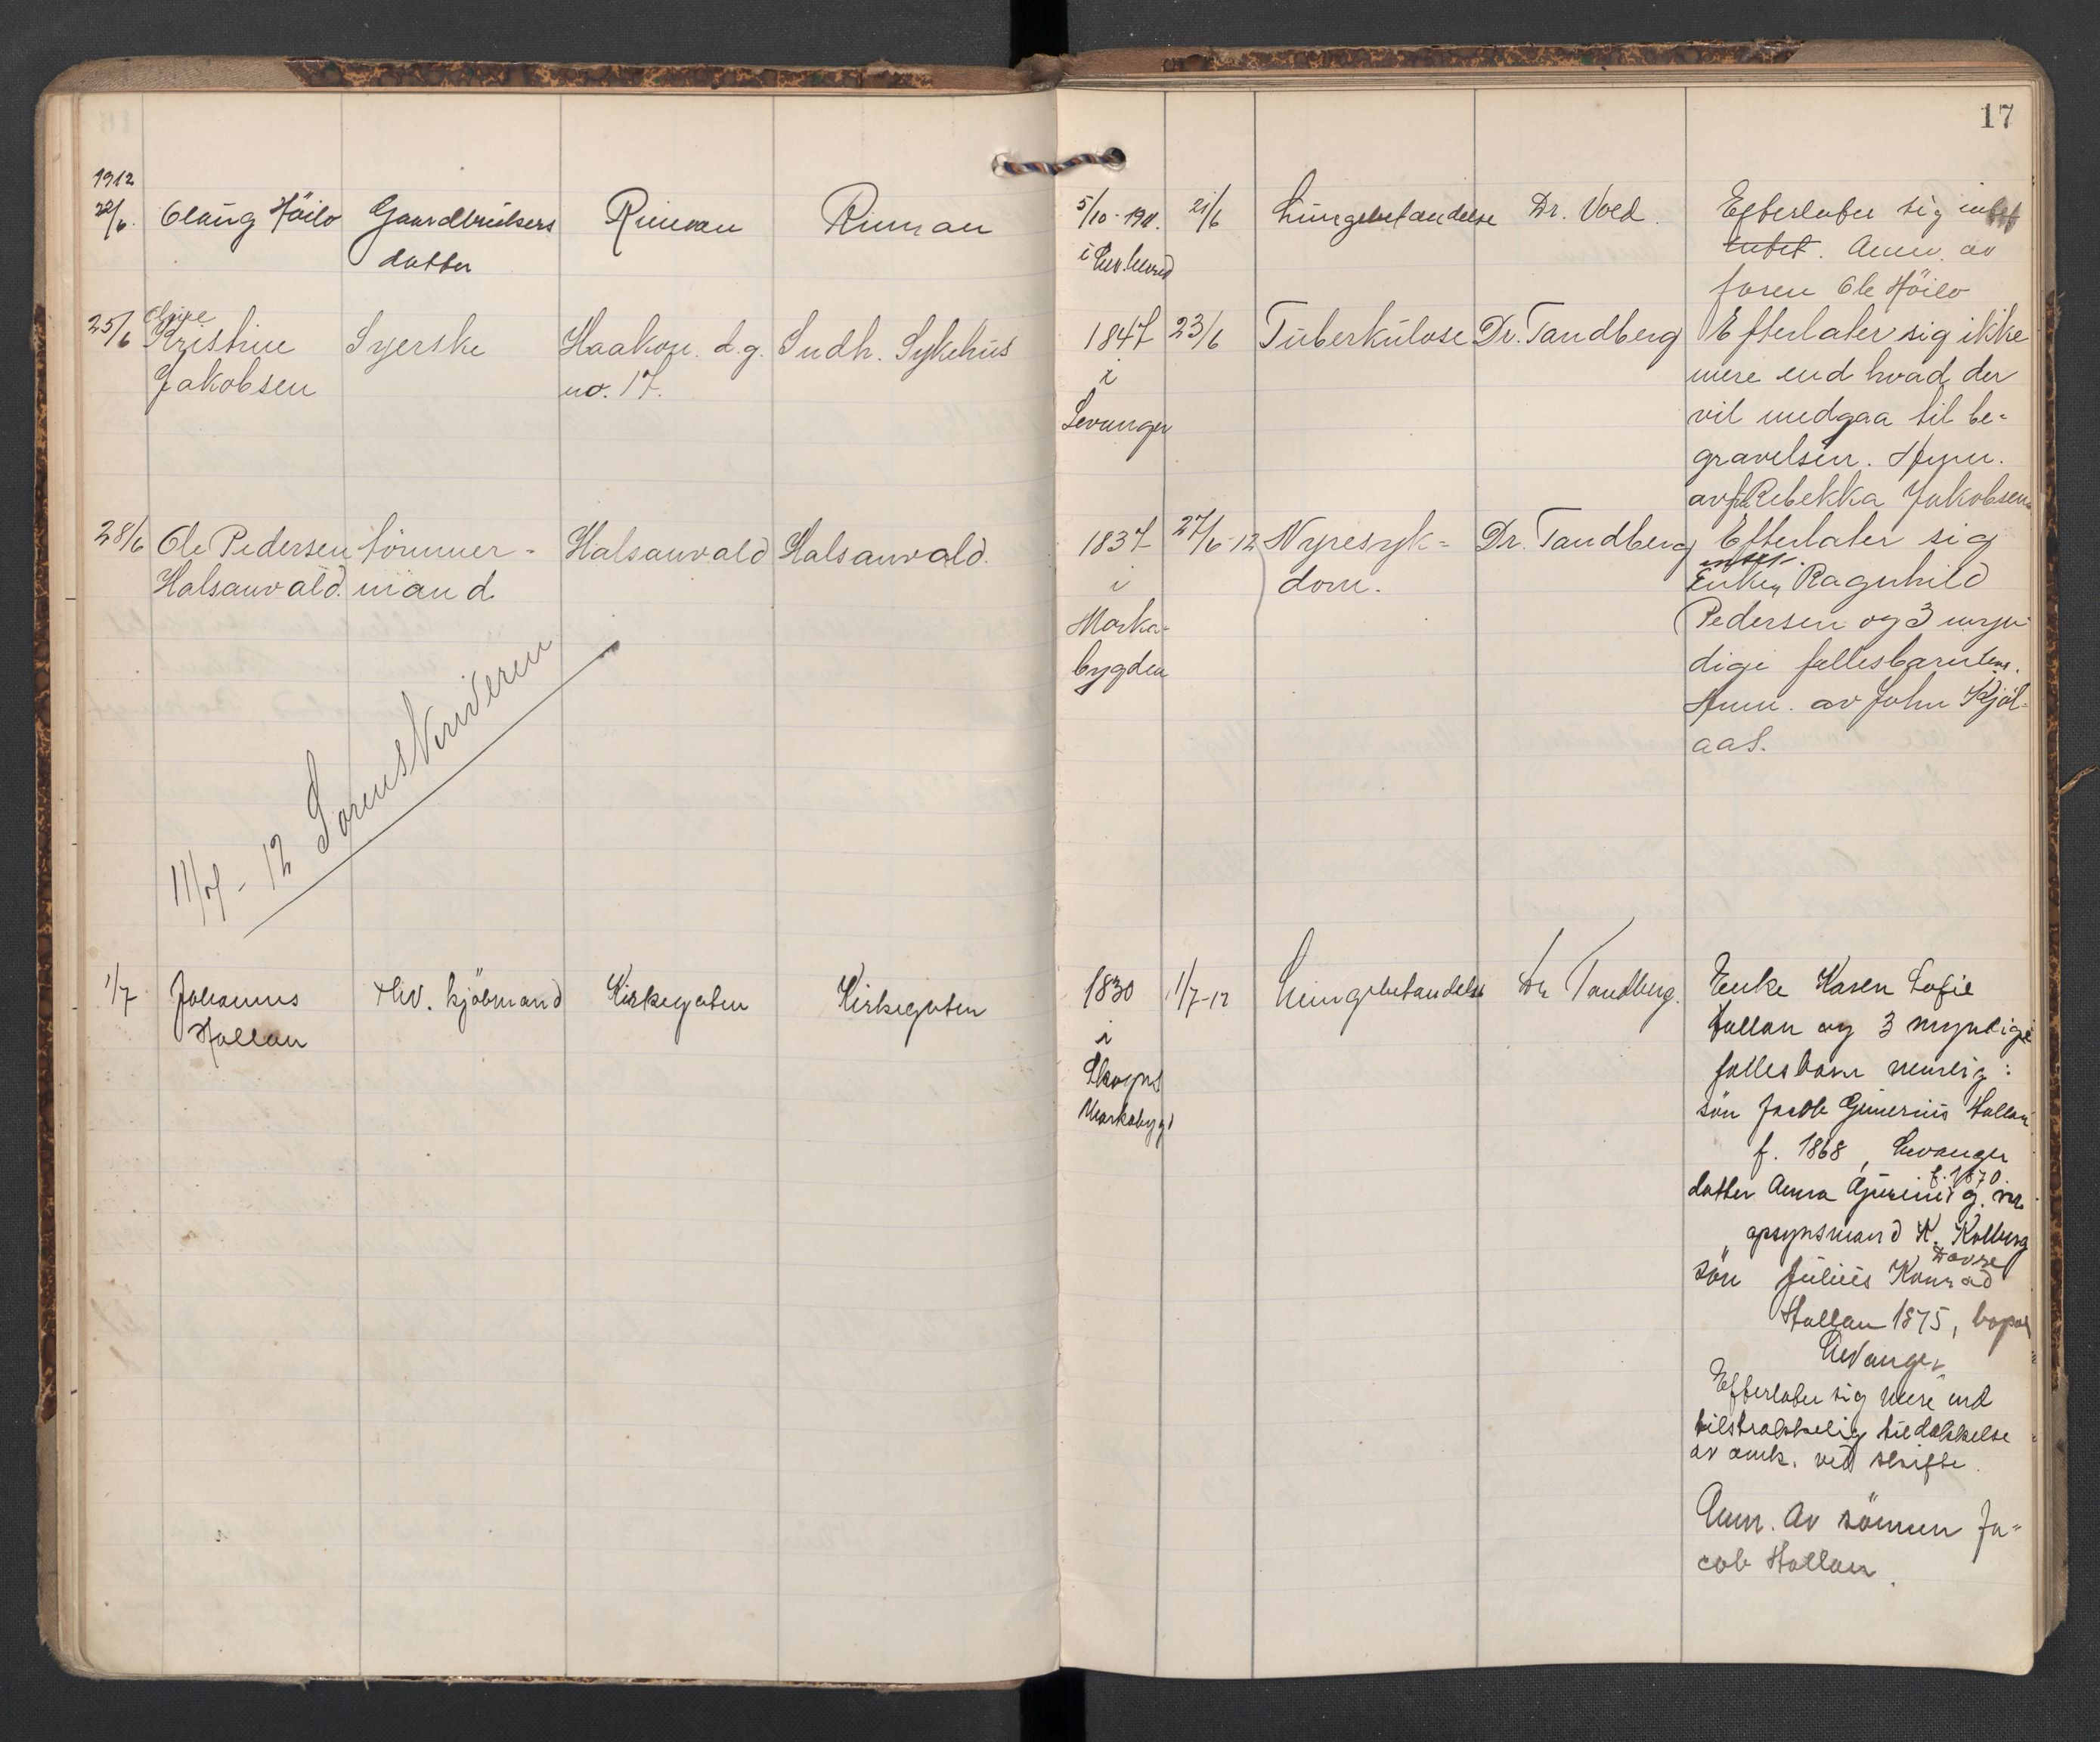 17
1912
22/6. Olaug Höilo Gaardbrukers Rinnan Rinnan 5/10-1911. 21/6 Lungebetændelse Dr. Vold. Efterlater sig intet
datter i Lev. intet. Anm. av
faren Ole Höilo
25/6 Kristine Syerske Haakon d.g. Indh. Sykehus 1847 23/6 Tuberkulose Dr. Tandberg Efterlater sig ikke
Jakobsen no. 17. i mere end hvad der
Levanger vil medgaa til be-
gravelsen. Anm.
av Rebekka Jakobsen
28/6 Ole Pedersen tömmer- Halsanvald Halsanvald. 1837 27/6-12 Nyresyk- Dr. Tandberg Efterlater sig
Halsanvald. mand i dom. Enken Ragnhild
Marka- Pedersen og 3 myn-
bygden dige fellesbarn
Anm. av John Kjöl-
aas.
11/7-12 Sorenskriveren
1/7 Johannes Hv. kjöbmand Kirkegaten Kirkegaten 1830 1/7-12 Lungebetændelse Dr Tandberg. Enke Karen Sofie
Hallan i Hallan og 3 myndige
Skogns fællesbarn nemlig:
Markabygd sön Jacob Gunerius Hallan
f. 1868, Levanger
f. 1870.
datter Anna g. m.
opsynsmand K. Kolberg
Dovre
sön Julius Konrad
Hallan 1875, bopæl
Levanger
Efterlater sig mere end
tilstrækkelig til dækkelse
av omk. ved skifte.
Anm. av sönnen Ja-
cob Hallan.